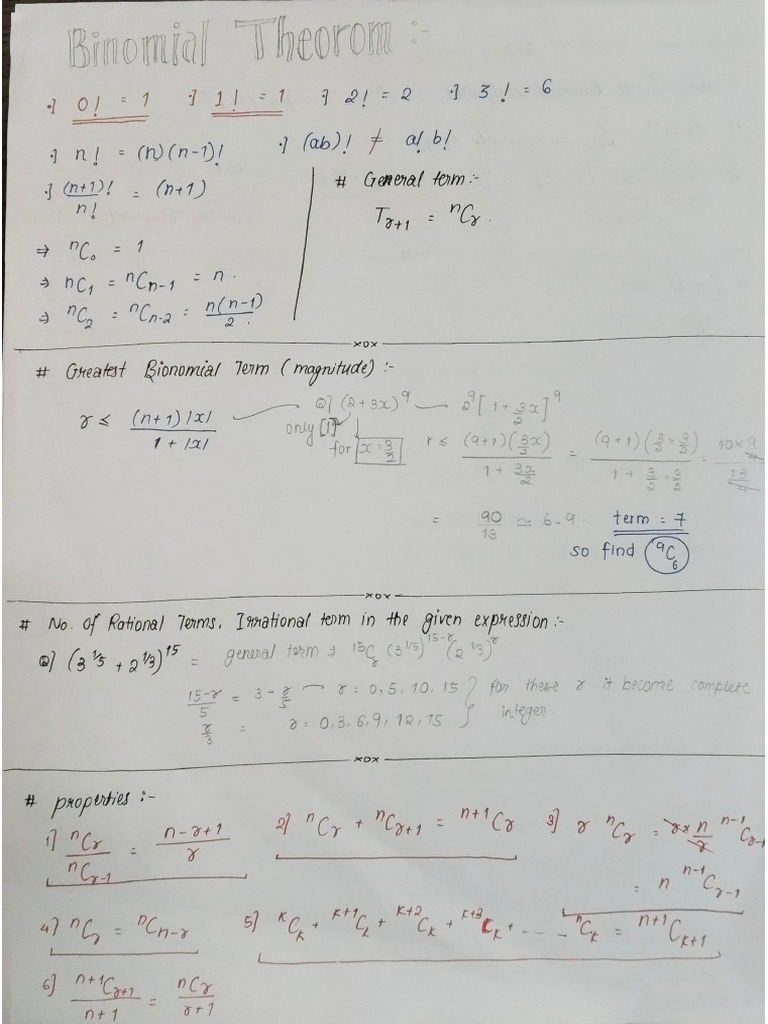 Binomial Theorom :-
·] 0! = 1 ·] 1! = 1 ·] 2! = 2 ·] 3! = 6
·] n! = (n)(n-1)! ·] (ab)! ≠ a! b!
·] (n+1)!/n! = (n+1)
# General term:-
T_{r+1} = ⁿCᵣ.
⇒ ⁿC₀ = 1
⇒ nC₁ = ⁿC_{n-1} = n.
⇒ ⁿC₂ = ⁿC_{n-2} = n(n-1)/2.
xox
# Greatest Bionomial Term (magnitude) :-
r ≤ (n+1)|x| / 1+|x|
Q] (2+3x)⁹ — 2⁹[1+3/2 x]⁹
only [1]
for x=3/2
r ≤ (9+1)(3/2 x) / 1+3x/2 = (9+1)(3/2 × 3/2) / 1+3/2×3/2 = 10×9/4 / 13/4
= 90/13 ≃ 6.9. term = 7
so find ⁹C₆
xox
# No. of Rational Terms, Irrational term in the given expression:-
Q] (3^{1/5} + 2^{1/3})^{15} = general term → ¹⁵Cᵣ (3^{1/5})^{15-r} (2^{1/3})^r
15-r/5 = 3 - r/5 — r = 0, 5, 10, 15 } for these r it become complete
r/3 = r = 0, 3, 6, 9, 12, 15 } integer.
xox
# properties :-
1] ⁿCᵣ / ⁿC_{r-1} = n-r+1 / r
2] ⁿCᵣ + ⁿC_{r+1} = ⁿ⁺¹Cᵣ
3] r ⁿCᵣ = r × n/r ⁿ⁻¹C_{r-1}
= n ⁿ⁻¹C_{r-1}
4] ⁿCᵣ = ⁿC_{n-r}
5] ᵏCₖ + ᵏ⁺¹Cₖ + ᵏ⁺²Cₖ + ᵏ⁺³Cₖ + ---- ⁿCₖ = ⁿ⁺¹C_{k+1}
6] ⁿ⁺¹C_{r+1} / n+1 = ⁿCᵣ / r+1